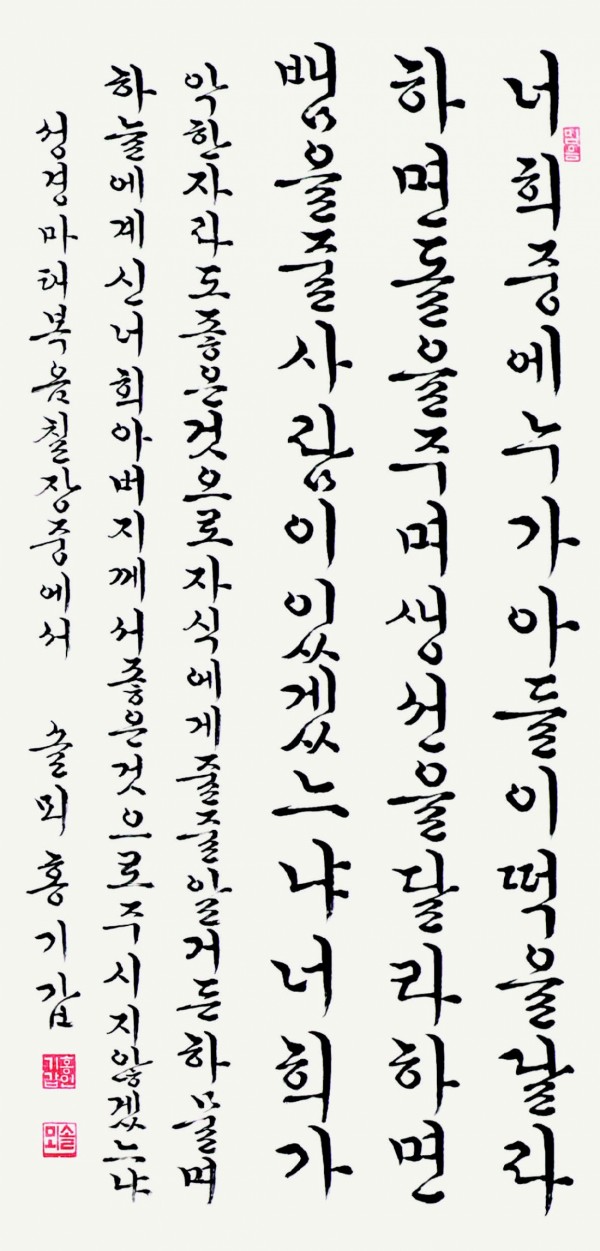 너희중에누가아들이떡을달라
하면돌을주며생선을달라하면
뱀을줄사람이있겠느냐너희가
악한자라도좋은것으로자식에게줄줄알거든하물며
하늘에계신너희아버지께서좋은것으로주시지않겠느냐
성경마태복음칠장중에서 솔뫼홍기갑
솔뫼